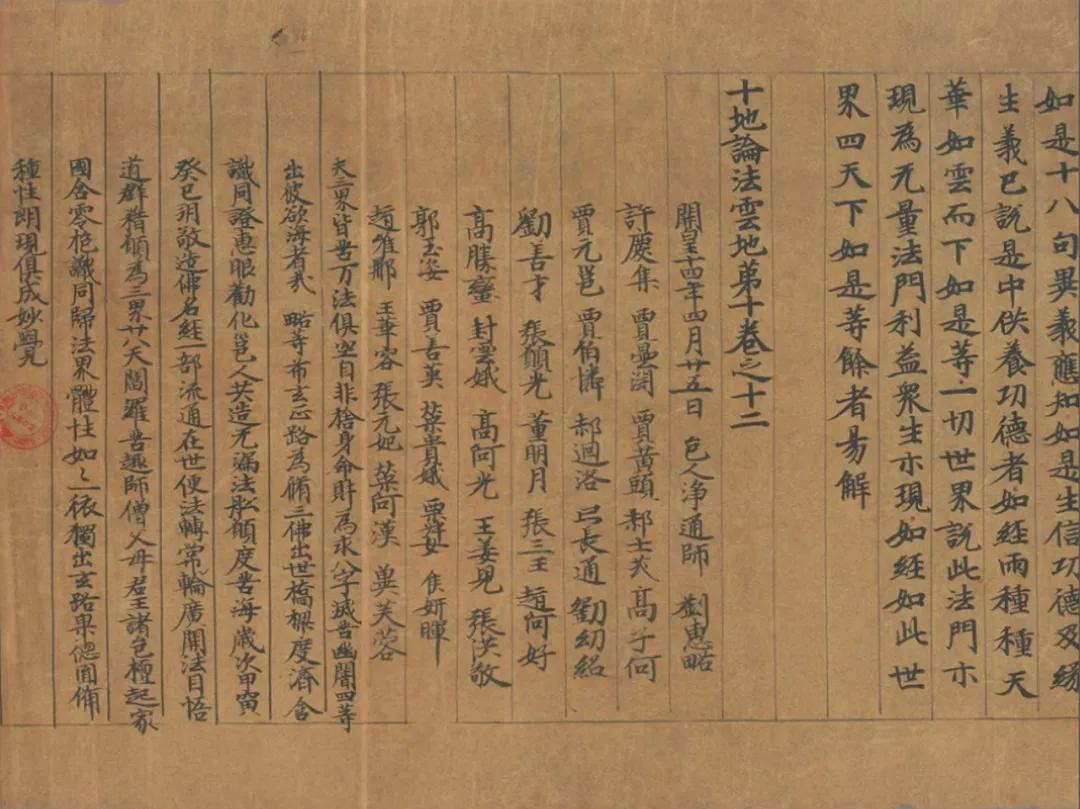 如是十八句異義應知如是生信功德及緣
生義已說是中供養功德者如經雨種種天
華如雲而下如是等一切世界說此法門亦
現為无量法門利益衆生亦現如經如此世
界四天下如是等餘者易解
十地論法雲地弟十卷之十二
開皇十四年四月廿五日 邑人淨通師 劉惠略
許慶集 賈曇 賈黃頭 郝士 高子何
賈元邕 賈伯憐 郝迴洛 長通 劉幼紹
劉善才 張願光 董明月 張三王 趙何好
高勝蠻 封雲娥 高何光 王姜兒 張洪敬
郭玉姿 賈善英 葉貴娥 賈 女 侯妍暉
趙維耶 王華容 張元妃 葉何漢 吳芙蓉
夫三界皆苦万法俱空自非捨身命財為求八字滅昏幽闇四等
出彼欲海者哉 略等布玄正路為脩三佛出世橋樑度濟含
識同證惠眼勸化邕人共造无漏法舩願度苦海歲次甲寅
癸巳月敬造佛名經一部流通在世使法轉常輪廣開法目悟
道群籍願為三界廿八天閻羅苦趣師僧父母君王諸邑檀起家
國含零抱識同歸法界體性如〻一依獨出玄路果德圓備
種性朗現俱成妙覺